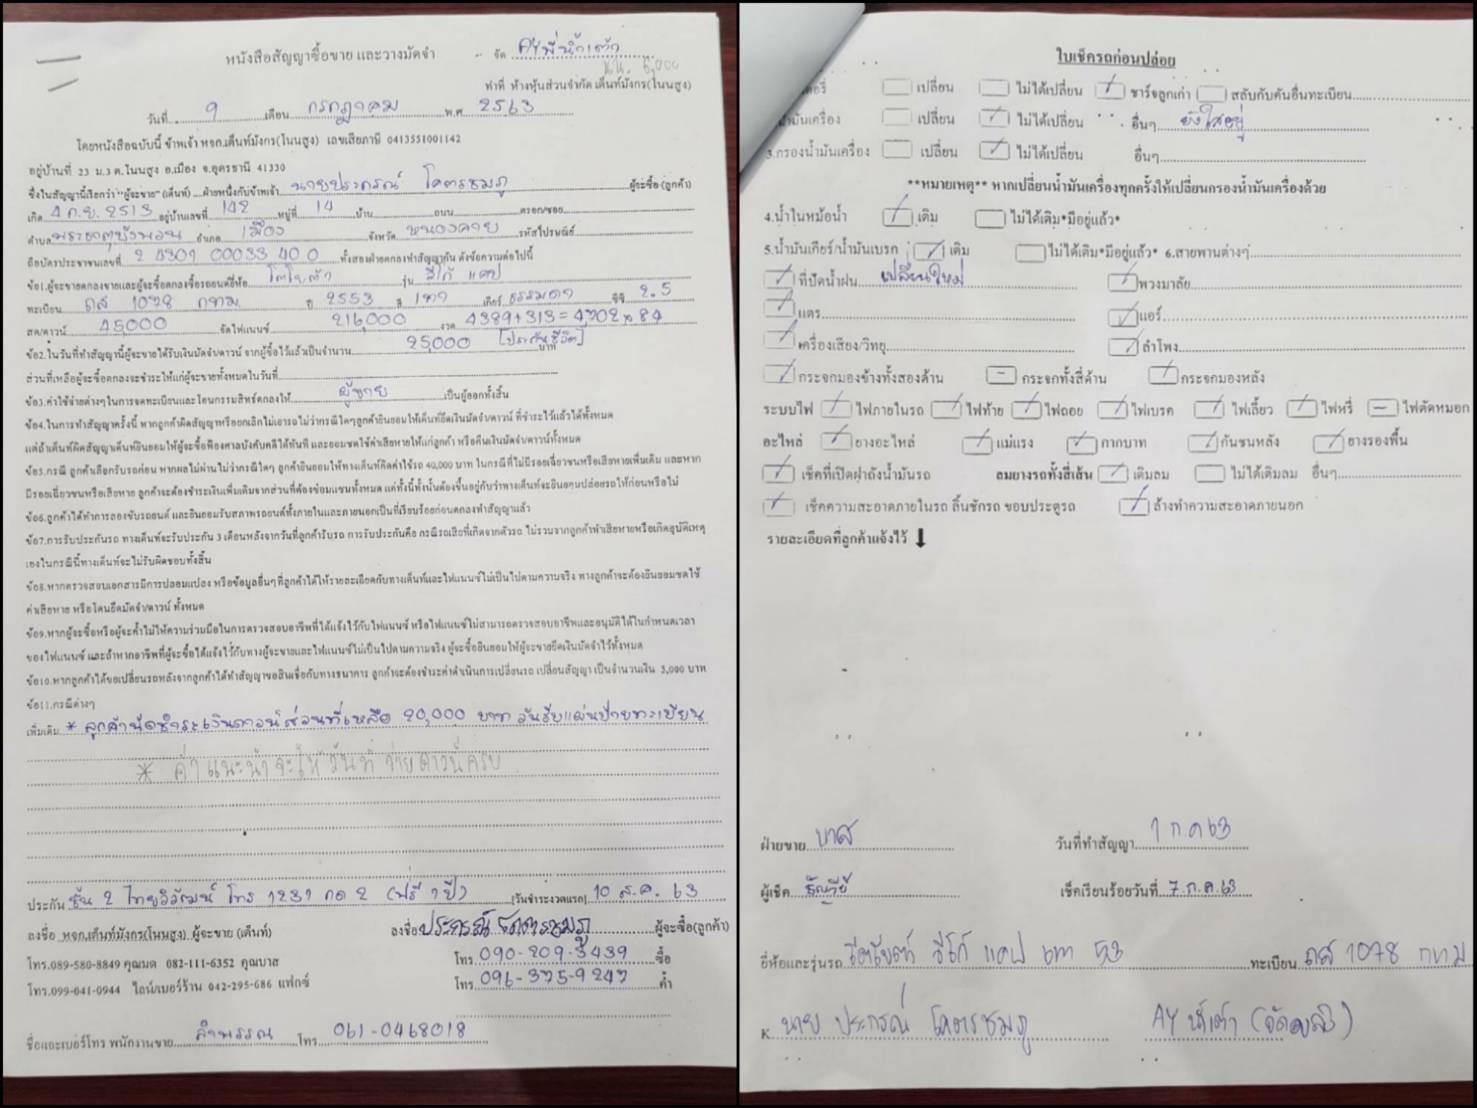 หนังสือสัญญาซื้อขาย และวางมัดจำ
จัด AYพี่น้ำเต้า
ทำที่ ห้างหุ้นส่วนจำกัด เต็นท์มังกร(โนนสูง)
วันที่ 9 เดือน กรกฎาคม พ.ศ 2563
โดยหนังสือฉบับนี้ ข้าพเจ้า หจก.เต็นท์มังกร(โนนสูง) เลขเสียภาษี 0413551001142
อยู่บ้านที่ 23 ม.3 ต.โนนสูง อ.เมือง จ.อุดรธานี 41330
ซึ่งในสัญญานี้เรียกว่า "ผู้จะขาย" (เต็นท์) ฝ่ายหนึ่งกับข้าพเจ้า นายประกรณ์ โคตรชมภู ผู้จะซื้อ (ลูกค้า)
เกิด 4 ก.ย. 2513 อยู่บ้านเลขที่ 142 หมู่ที่ 14 บ้าน ถนน ตรอก/ซอย
ตำบล พระธาตุบังพวน อำเภอ เมือง จังหวัด หนองคาย รหัสไปรษณีย์
ถือบัตรประชาชนเลขที่ 2 4301 00033 40 0 ทั้งสองฝ่ายตกลงทำสัญญากัน ดังข้อความต่อไปนี้
ข้อ1.ผู้จะขายตกลงขายและผู้จะซื้อตกลงซื้อรถยนต์ยี่ห้อ โตโยต้า รุ่น วีโก้ แคป
ทะเบียน ถส 1078 กทม ปี 2553 สี เทา เกียร์ ธรรมดา ซีซี 2.5
สด/ดาวน์ 45,000 จัดไฟแนนซ์ 216,000 งวด 4389+313=4,702 x 84
ข้อ2.ในวันที่ทำสัญญานี้ผู้จะขายได้รับเงินมัดจำ/ดาวน์ จากผู้ซื้อไว้แล้วเป็นจำนวน 25,000 บาท [ประกันชีวิต]
ส่วนที่เหลือผู้จะซื้อตกลงจะชำระให้แก่ผู้จะขายทั้งหมดในวันที่
ข้อ3.ค่าใช้จ่ายต่างๆในการจดทะเบียนและโอนกรรมสิทธ์ตกลงให้ ผู้ขาย เป็นผู้ออกทั้งสิ้น
ข้อ4.ในการทำสัญญาครั้งนี้ หากลูกค้าผิดสัญญาหรือยกเลิกไม่เอารถ ไม่ว่ากรณีใดๆลูกค้ายินยอมให้เต็นท์ยึดเงินมัดจำ/ดาวน์ ที่ชำระไว้แล้วได้ทั้งหมด
แต่ถ้าเต็นท์ผิดสัญญาเต็นท์ยินยอมให้ผู้จะซื้อฟ้องศาลบังคับคดีได้ทันที และยอมชดใช้ค่าเสียหายให้แก่ลูกค้า หรือคืนเงินมัดจำ/ดาวน์ทั้งหมด
ข้อ5.กรณี ลูกค้าเลือกรับรถก่อน หากผลไม่ผ่านไม่ว่ากรณีใดๆ ลูกค้ายินยอมให้ทางเต็นท์คิดค่าใช้รถ 40,000 บาท ในกรณีที่ไม่มีรอยเฉี่ยวชนหรือเสียหายเพิ่มเติม และหาก
มีรอยเฉี่ยวชนหรือเสียหาย ลูกค้าจะต้องชำระเงินเพิ่มเติมจากส่วนที่ต้องซ่อมแซมทั้งหมด แต่ทั้งนี้ทั้งนั้นต้องขึ้นอยู่กับว่าทางเต็นท์จะยินยอมปล่อยรถให้ก่อนหรือไม่
ข้อ6.ลูกค้าได้ทำการลองขับรถยนต์ และยินยอมรับสภาพรถยนต์ทั้งภายในและภายนอกเป็นที่เรียบร้อยก่อนตกลงทำสัญญาแล้ว
ข้อ7.การรับประกันรถ ทางเต็นท์จะรับประกัน 3 เดือนหลังจากวันที่ลูกค้ารับรถ การรับประกันคือ กรณีรถเสียที่เกิดจากตัวรถ ไม่รวมจากลูกค้าทำเสียหายหรือเกิดอุบัติเหตุ
เองในกรณีนี้ทางเต็นท์จะไม่รับผิดชอบทั้งสิ้น
ข้อ8.หากตรวจสอบเอกสารมีการปลอมแปลง หรือข้อมูลอื่นๆที่ลูกค้าได้ให้รายละเอียดกับทางเต็นท์และไฟแนนซ์ไม่เป็นไปตามความจริง ทางลูกค้าจะต้องยินยอมชดใช้
ค่าเสียหาย หรือโดนยึดมัดจำ/ดาวน์ ทั้งหมด
ข้อ9.หากผู้จะซื้อหรือผู้จะค้ำไม่ให้ความร่วมมือในการตรวจสอบอาชีพที่ได้แจ้งไว้กับไฟแนนซ์ หรือไฟแนนซ์ไม่สามารถตรวจสอบอาชีพและอนุมัติได้ในกำหนดเวลา
ของไฟแนนซ์ และถ้าหากอาชีพที่ผู้จะซื้อได้แจ้งไว้กับทางผู้จะขายและไฟแนนซ์ไม่เป็นไปตามความจริง ผู้จะซื้อยินยอมให้ผู้จะขายยึดเงินมัดจำไว้ทั้งหมด
ข้อ10.หากลูกค้าได้ขอเปลี่ยนรถหลังจากลูกค้าได้ทำสัญญาขอสินเชื่อกับทางธนาคาร ลูกค้าจะต้องชำระค่าดำเนินการเปลี่ยนรถ เปลี่ยนสัญญา เป็นจำนวนเงิน 5,000 บาท
ข้อ11.กรณีต่างๆ
เพิ่มเติม * ลูกค้านัดชำระเงินดาวน์ส่วนที่เหลือ 20,000 บาท วันรับแผ่นป้ายทะเบียน
* ค่าแนะนำจะให้วันที่จ่ายดาวน์ครบ
ประกัน ชั้น 2 ไทยวิวัฒน์ โทร 1231 กด 2 (ฟรี 1 ปี) (วันชำระงวดแรก) 10 ส.ค. 63
ลงชื่อ หจก.เต็นท์มังกร(โนนสูง) ผู้จะขาย (เต็นท์) ลงชื่อ ประกรณ์ โคตรชมภู ผู้จะซื้อ(ลูกค้า)
โทร.089-580-8849 คุณมด 082-111-6352 คุณบาส โทร 090-209-3439 ซื้อ
โทร.099-041-0944 ไลน์/เบอร์ร้าน 042-295-686 แฟกซ์ โทร 096-375-9247 ค้ำ
ชื่อและเบอร์โทร พนักงานขาย ลำพรรณ โทร 061-0468018
ใบเช็ครถก่อนปล่อย
เปลี่ยน ไม่ได้เปลี่ยน ชาร์จลูกเก่า สลับกับคันอื่นทะเบียน
น้ำมันเครื่อง เปลี่ยน ไม่ได้เปลี่ยน อื่นๆ ยังใสอยู่
3.กรองน้ำมันเครื่อง เปลี่ยน ไม่ได้เปลี่ยน อื่นๆ
**หมายเหตุ** หากเปลี่ยนน้ำมันเครื่องทุกครั้งให้เปลี่ยนกรองน้ำมันเครื่องด้วย
4.น้ำในหม้อน้ำ เติม ไม่ได้เติม*มีอยู่แล้ว*
5.น้ำมันเกียร์/น้ำมันเบรก เติม ไม่ได้เติม*มีอยู่แล้ว* 6.สายพานต่างๆ
ที่ปัดน้ำฝน เปลี่ยนใหม่ พวงมาลัย
แตร แอร์
เครื่องเสียง/วิทยุ ลำโพง
กระจกมองข้างทั้งสองด้าน กระจกทั้งสี่ด้าน กระจกมองหลัง
ระบบไฟ ไฟภายในรถ ไฟท้าย ไฟถอย ไฟเบรค ไฟเลี้ยว ไฟหรี่ ไฟตัดหมอก
อะไหล่ ยางอะไหล่ แม่แรง กากบาท กันชนหลัง ยางรองพื้น
เช็คที่เปิดฝาถังน้ำมันรถ ลมยางรถทั้งสี่เส้น เติมลม ไม่ได้เติมลม อื่นๆ
เช็คความสะอาดภายในรถ ลิ้นชักรถ ขอบประตูรถ ล้างทำความสะอาดภายนอก
รายละเอียดที่ลูกค้าแจ้งไว้
ฝ่ายขาย บาส วันที่ทำสัญญา 7 ก.ค 63
ผู้เช็ค เช็คเรียบร้อยวันที่ 7.ก.ค.63
ยี่ห้อและรุ่นรถ โตโยต้า วีโก้ แคป เทา 53 ทะเบียน ถส 1078 กทม
K นาย ประกรณ์ โคตรชมภู AY น้ำเต้า